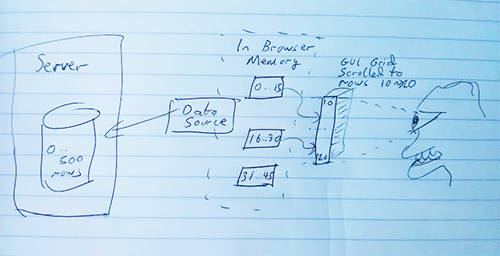 Server
0..
500
rows
Data
Source
In Browser
Memory
0..15
16..30
31..45
GUI Grid
Scrolled to
rows 10→20
10
20